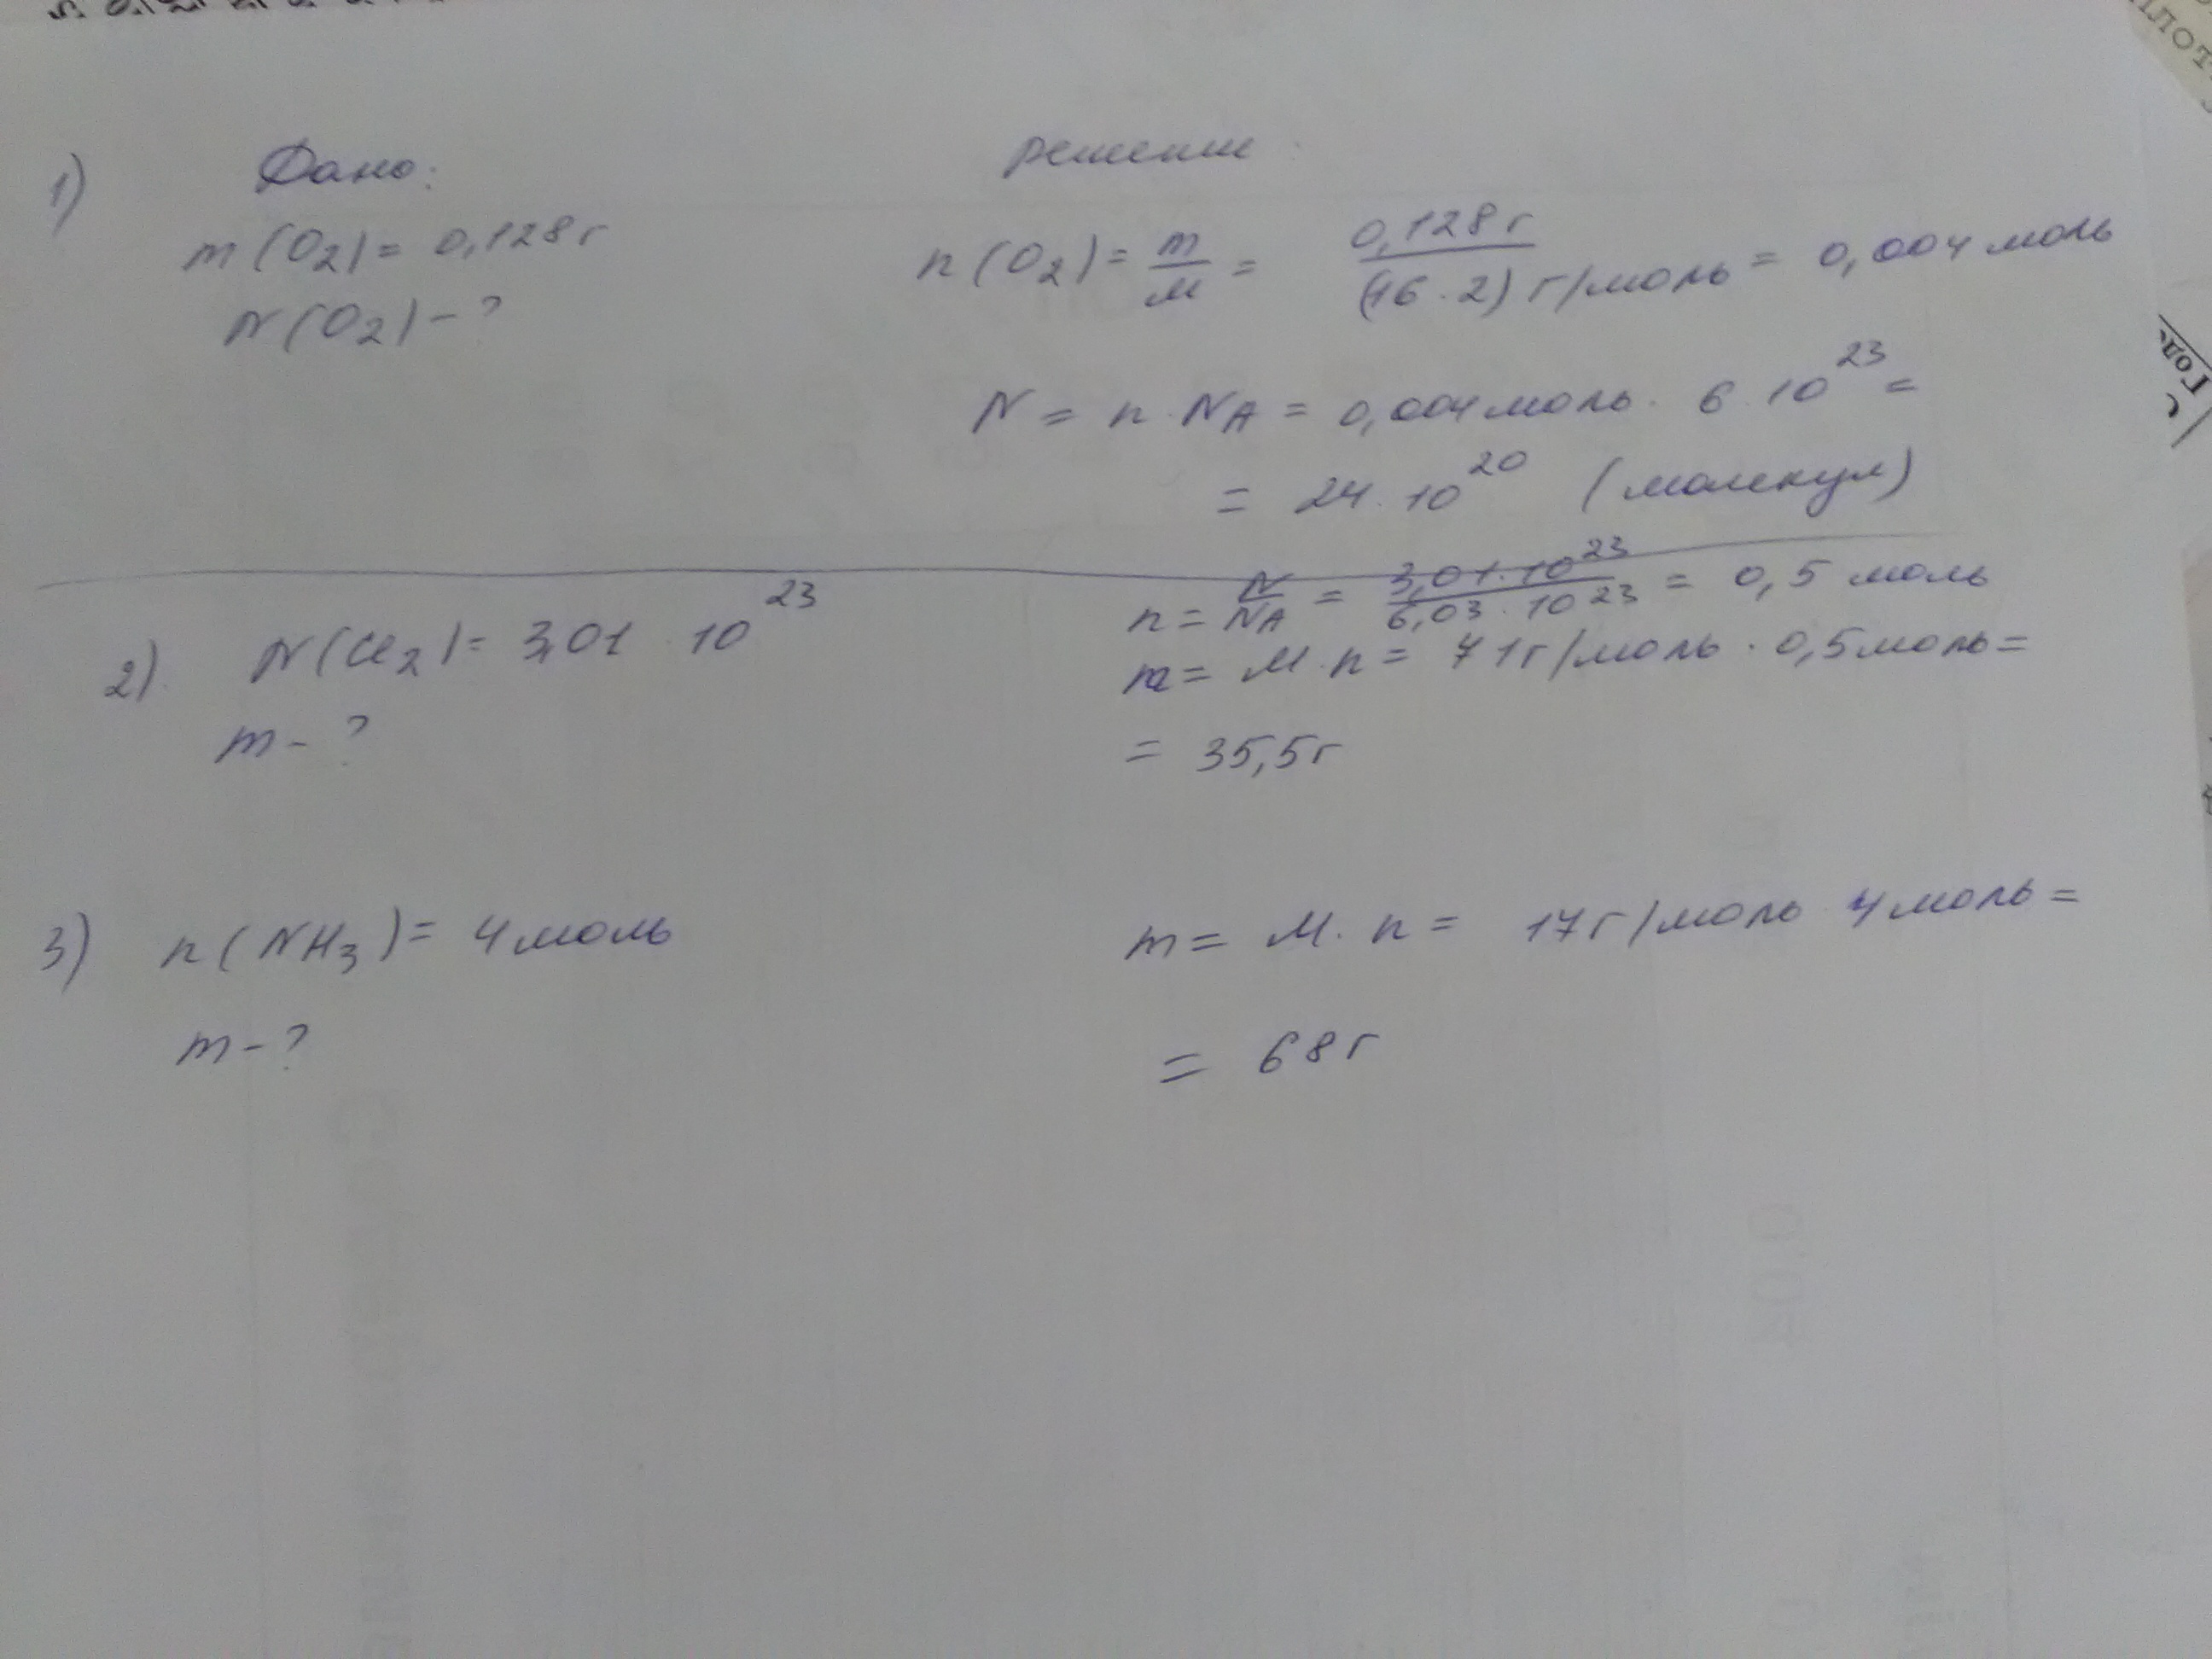 1) Дано: решение
m(O₂) = 0,128г n(O₂) = m/M = 0,128г/(16·2) г/моль = 0,004 моль
N(O₂) - ?
N = n·NA = 0,004 моль · 6·10²³ =
= 24·10²⁰ (молекул)
2) N(Cl₂) = 3,01·10²³ n = N/NA = 3,01·10²³/6,03·10²³ = 0,5 моль
m = M·n = 71г/моль · 0,5 моль =
m - ? = 35,5г
3) n(NH₃) = 4 моль m = M·n = 17г/моль 4 моль =
m - ? = 68г
Год